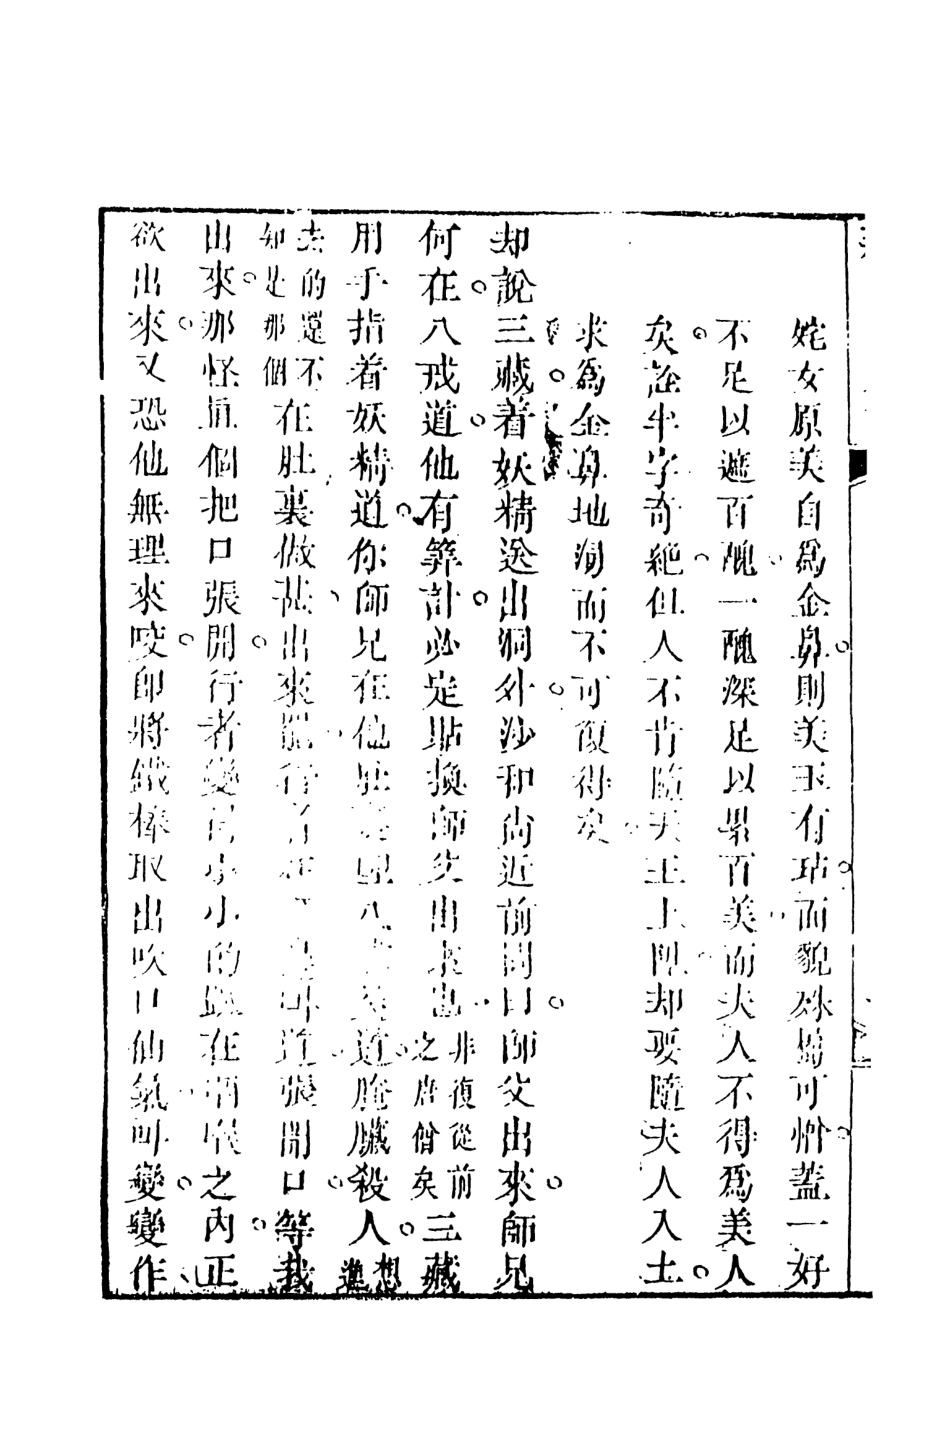 姹女原美自為金鼻則美玉有玷而貌姝揭可憎蓋一好
不足以遮百醜一醜深足以累百美而夫人不得為美人
矣詮半字奇絕但人不肯隨天王上界却要隨夫人入土
求為金鼻地湧而不可復得矣
却說三藏着妖精送出洞外沙和尚近前問曰師父出來師兄
何在八戒道他有算計必定貼換師父出來也非復從前之唐僧矣三藏
用手指着妖精道你師兄在他肚裏哩八戒笑道腌臟殺人想進
去的還不知是那個在肚裏做甚出來罷行者在裏邊叫道張開口等我
出來那怪真個把口張開行者變得小小的𨁝在咽喉之內正
欲出來又恐他無理來咬即將鐵棒取出吹口仙氣叫變變作